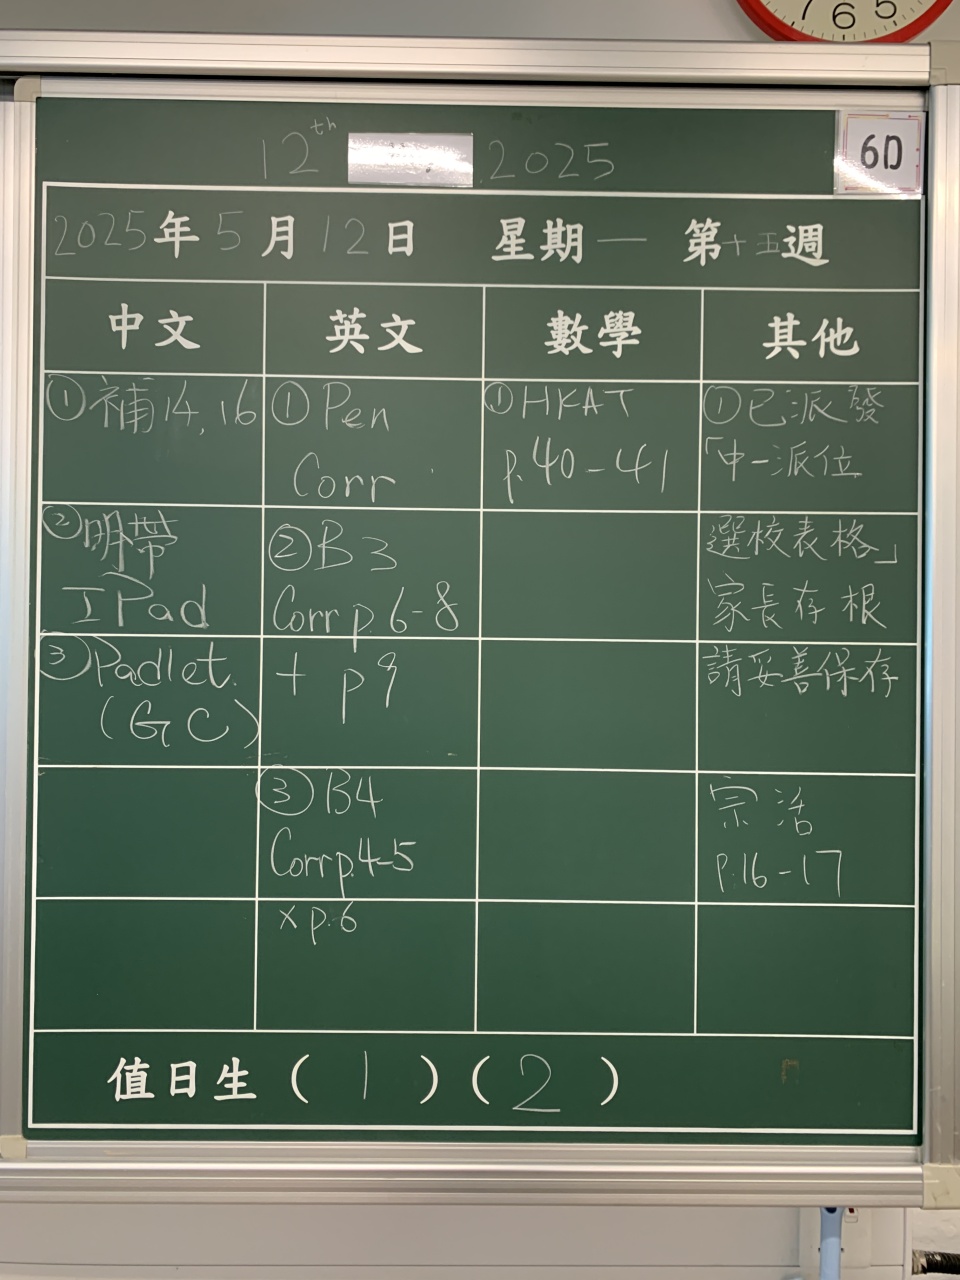 7 6 5
12th 2025
6D
2025年5月12日 星期一 第十五週
中文 英文 數學 其他
①補14,16
②明帶
IPad
③Padlet.
(GC)
①Pen
Corr
②B3
Corr p.6-8
+ p9
③B4
Corr p.4-5
x p.6
①HKAT
p.40-41
①已派發
「中一派位
選校表格」
家長存根
請妥善保存
宗活
P.16-17
值日生(1)(2)